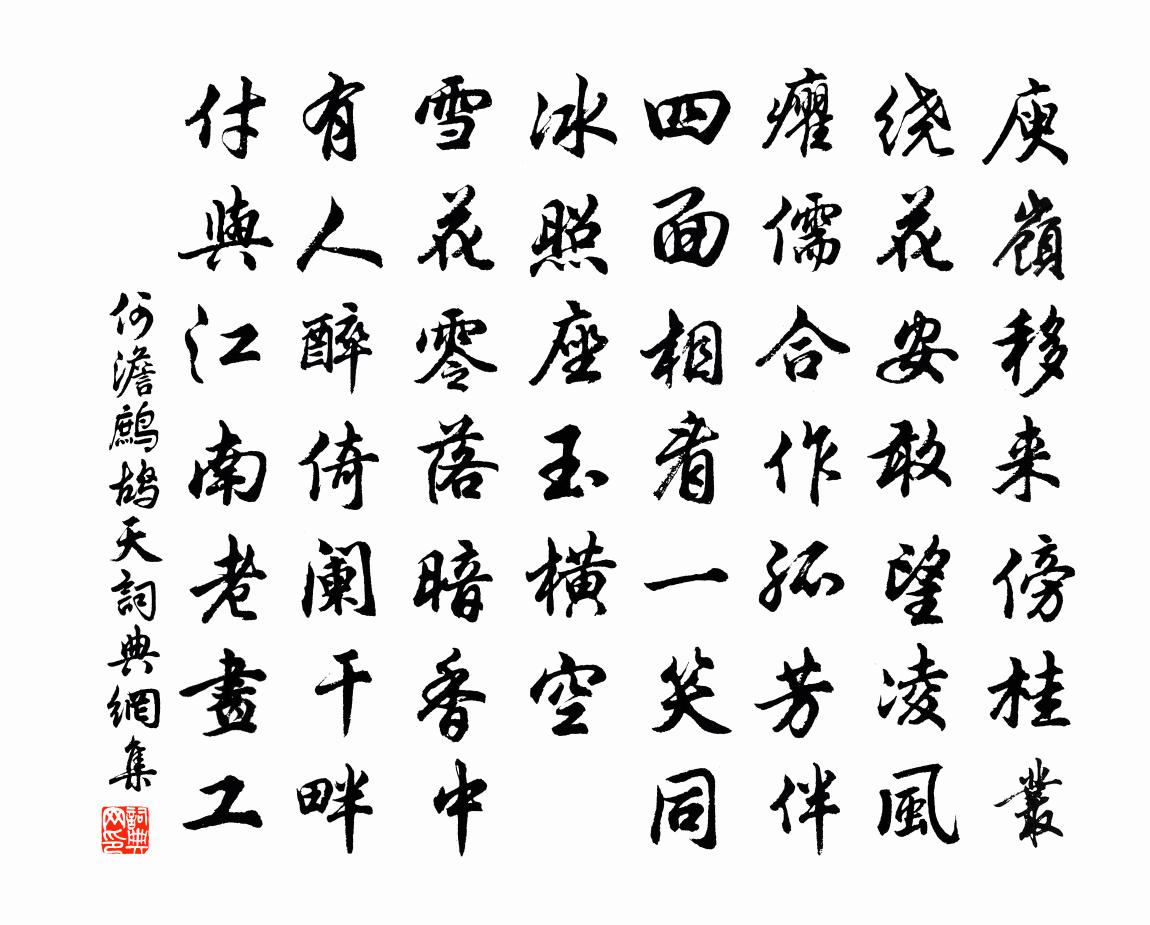 庾嶺移来傍桂叢
绕花安敢望凌風
癯儒合作孤芳伴
四面相看一笑同
冰照座玉横空
雪花零落暗香中
有人醉倚阑干畔
付與江南老畫工
何澹鹧鸪天詞典網集
詞典网印